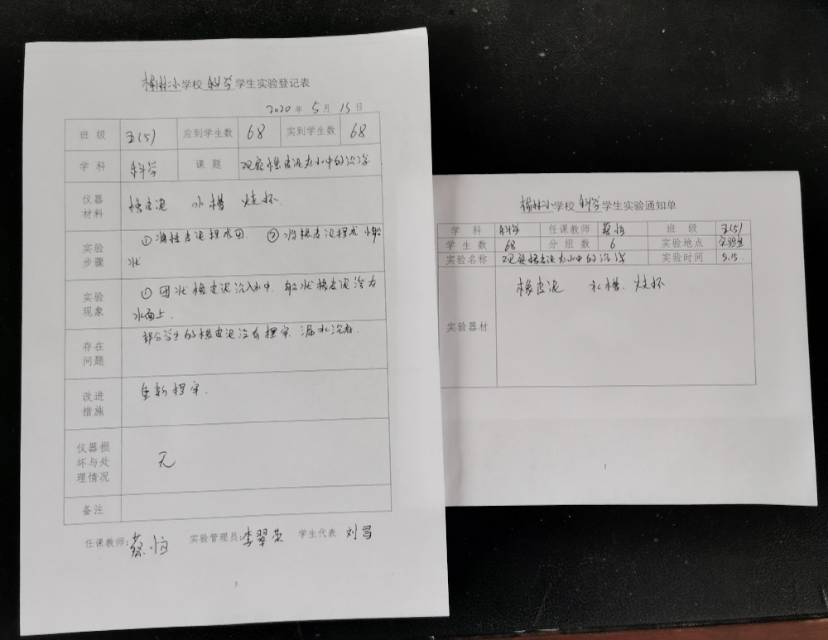 学校 科学 学生实验登记表
2020 年 5 月 15 日
班 级 五(5) 应到学生数 68 实到学生数 68
学 科 科学 课 题 观察橡皮泥在水中的沉浮
仪器
材料
橡皮泥 水槽 烧杯
实验
步骤
①将橡皮泥捏成团. ②将橡皮泥捏成船
状
实验
现象
①团状橡皮泥沉入水中, 船状橡皮泥浮在
水面上.
存在
问题
部分学生的橡皮泥没有捏实, 漏水沉
改进
措施
重新捏实.
仪器损
坏与处
理情况
无
备注
任课教师: 蔡 实验管理员: 李翠 学生代表 刘
学校 科学 学生实验通知单
学 科 科学 任课教师 蔡 班 级 五(5)
学 生 数 68 分 组 数 6 实验地点 实验室
实验名称 观察橡皮泥在水中的沉浮 实验时间 5.15.
实验器材
橡皮泥 水槽. 烧杯